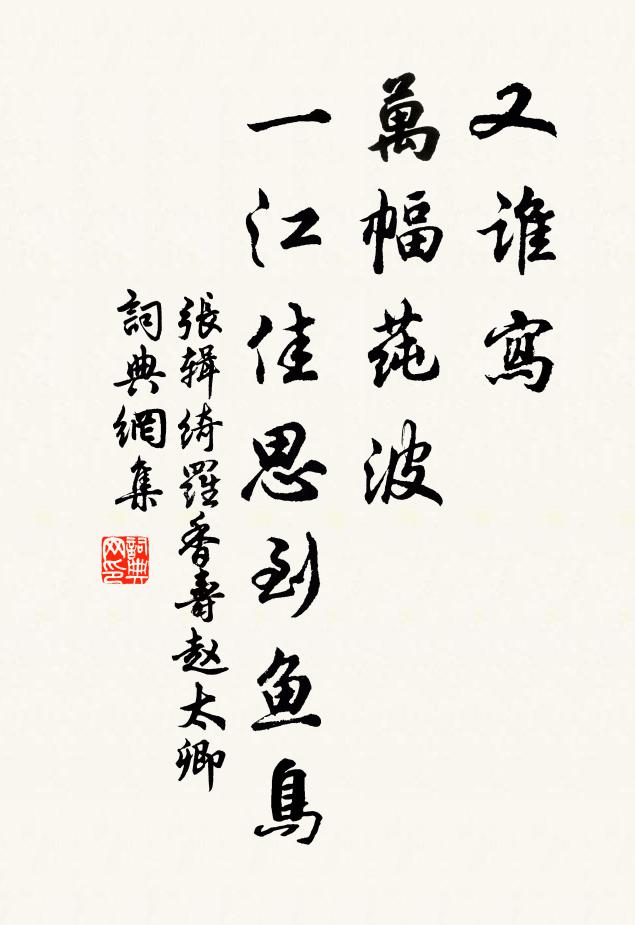 又誰寫
萬幅莼波
一江佳思到鱼鳥
張輯綺羅香壽赵太卿
詞典網集
詞典
网印